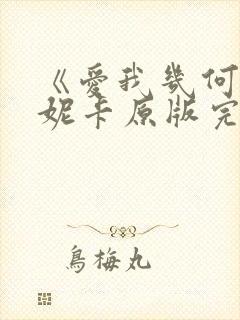 《愛我幾何
妮卡原版完
烏梅丸